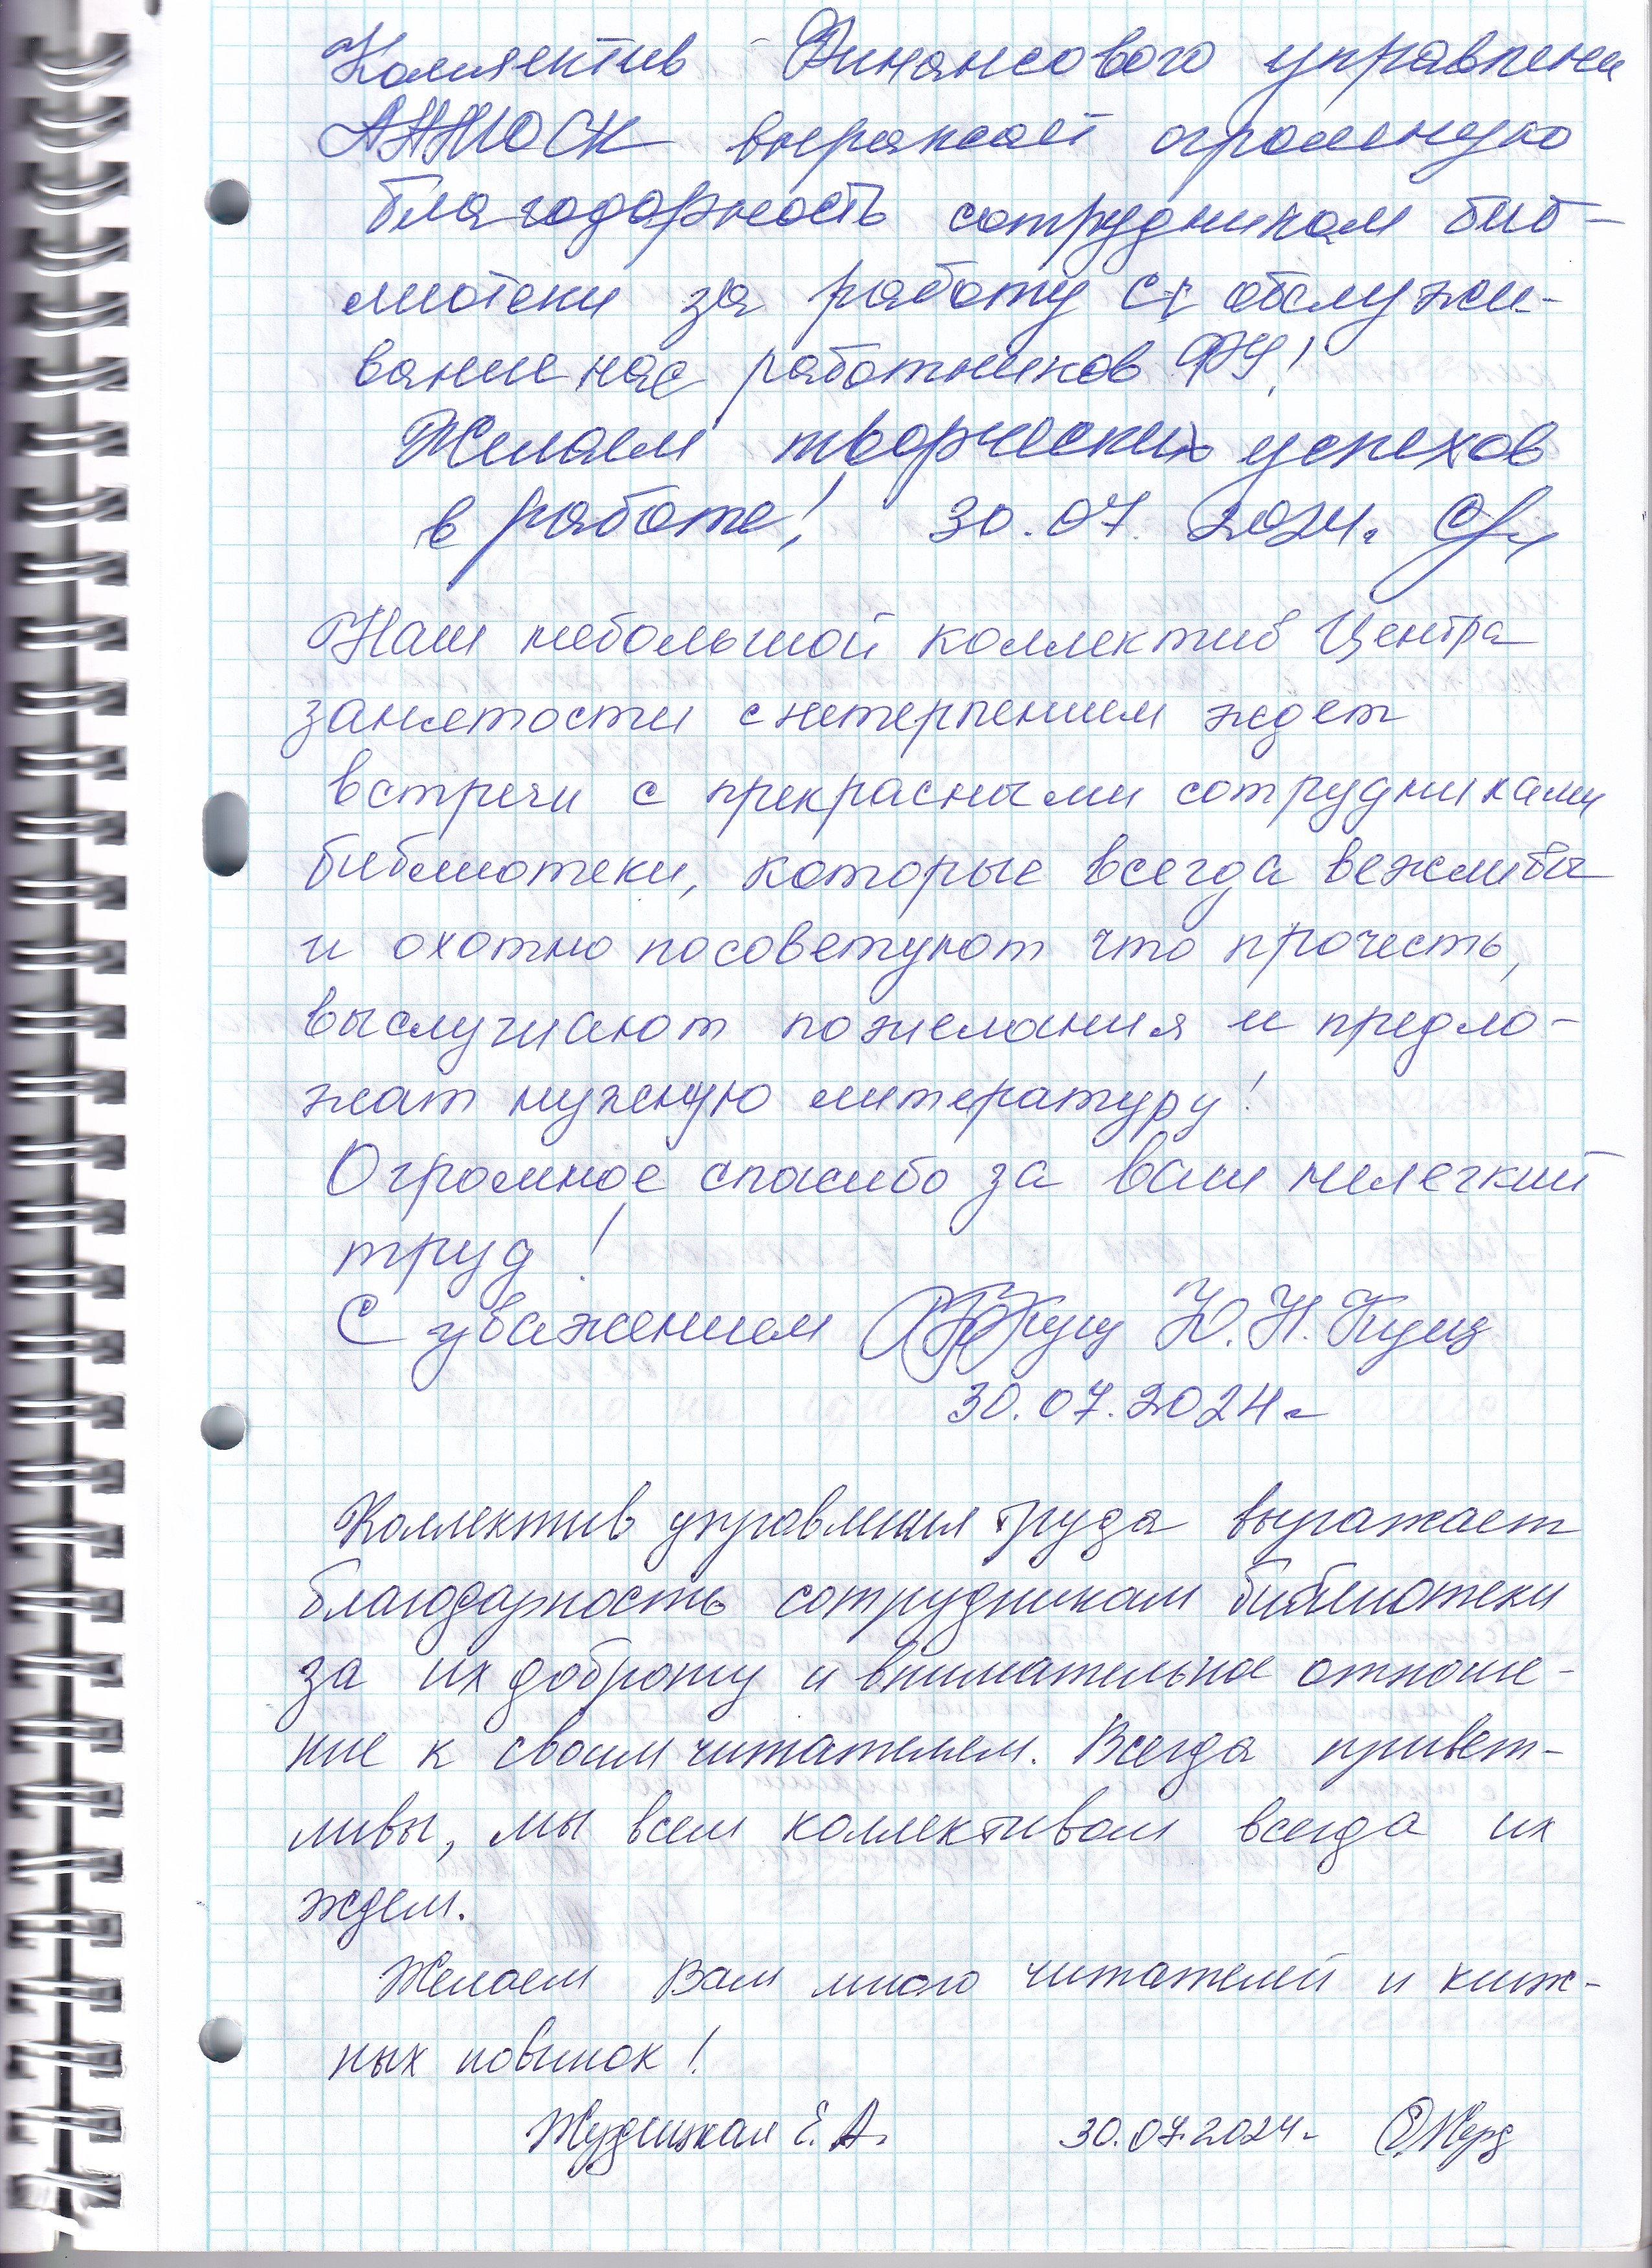 Коллектив Финансового управлени
выражает огромную
благодарность сотрудникам биб-
лиотеки за работу обслужи-
вание нас работников ФУ!
Желаем творческих успехов
в работе! 30.07 2024г.
Наш небольшой коллектив Центра
занятости с нетерпением ждет
встречи с прекрасными сотрудниками
библиотеки, которые всегда вежливы
и охотно посоветуют что прочесть,
выслушают пожелания и предло-
жат нужную литературу!
Огромное спасибо за ваш нелегкий
труд!
С уважением Ю.Н. Куц
30.07.2024г
Коллектив управления труда выражает
благодарность сотрудникам библиотеки
за их доброту и внимательное отноше-
ние к своим читателем. Всегда привет-
ливы, мы всем коллективом всегда их
ждем.
Желаем Вам много читателей и книж-
ных новинок!
Е.А. 30.07.2024г.